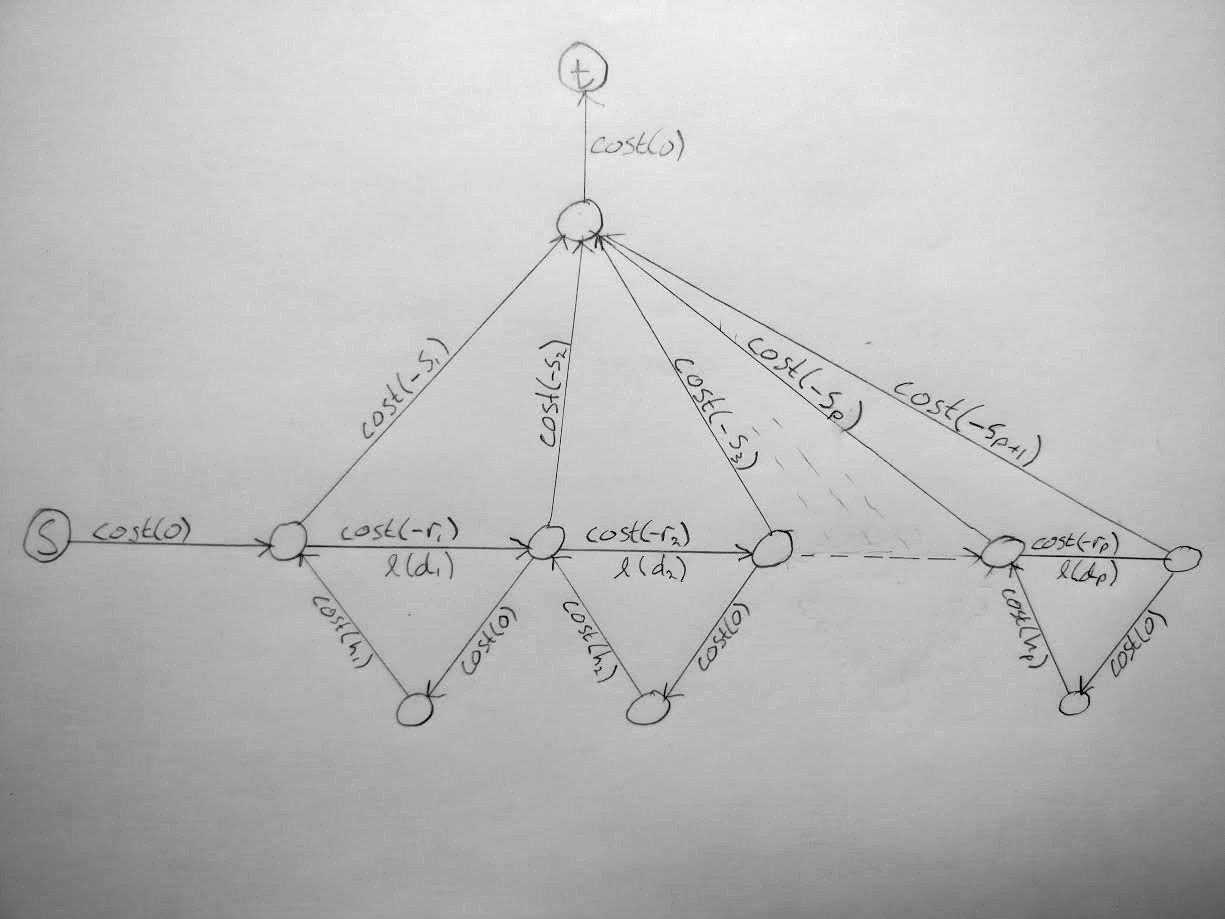 t
cost(0)
cost(-s₁)
cost(-s₂)
cost(-s₃)
cost(-sₚ)
cost(-sₚ₊₁)
S
cost(0)
cost(-r₁)
l(d₁)
cost(-r₂)
l(d₂)
cost(-rₚ)
l(dₚ)
cost(h₁)
cost(0)
cost(h₂)
cost(0)
cost(hₚ)
cost(0)